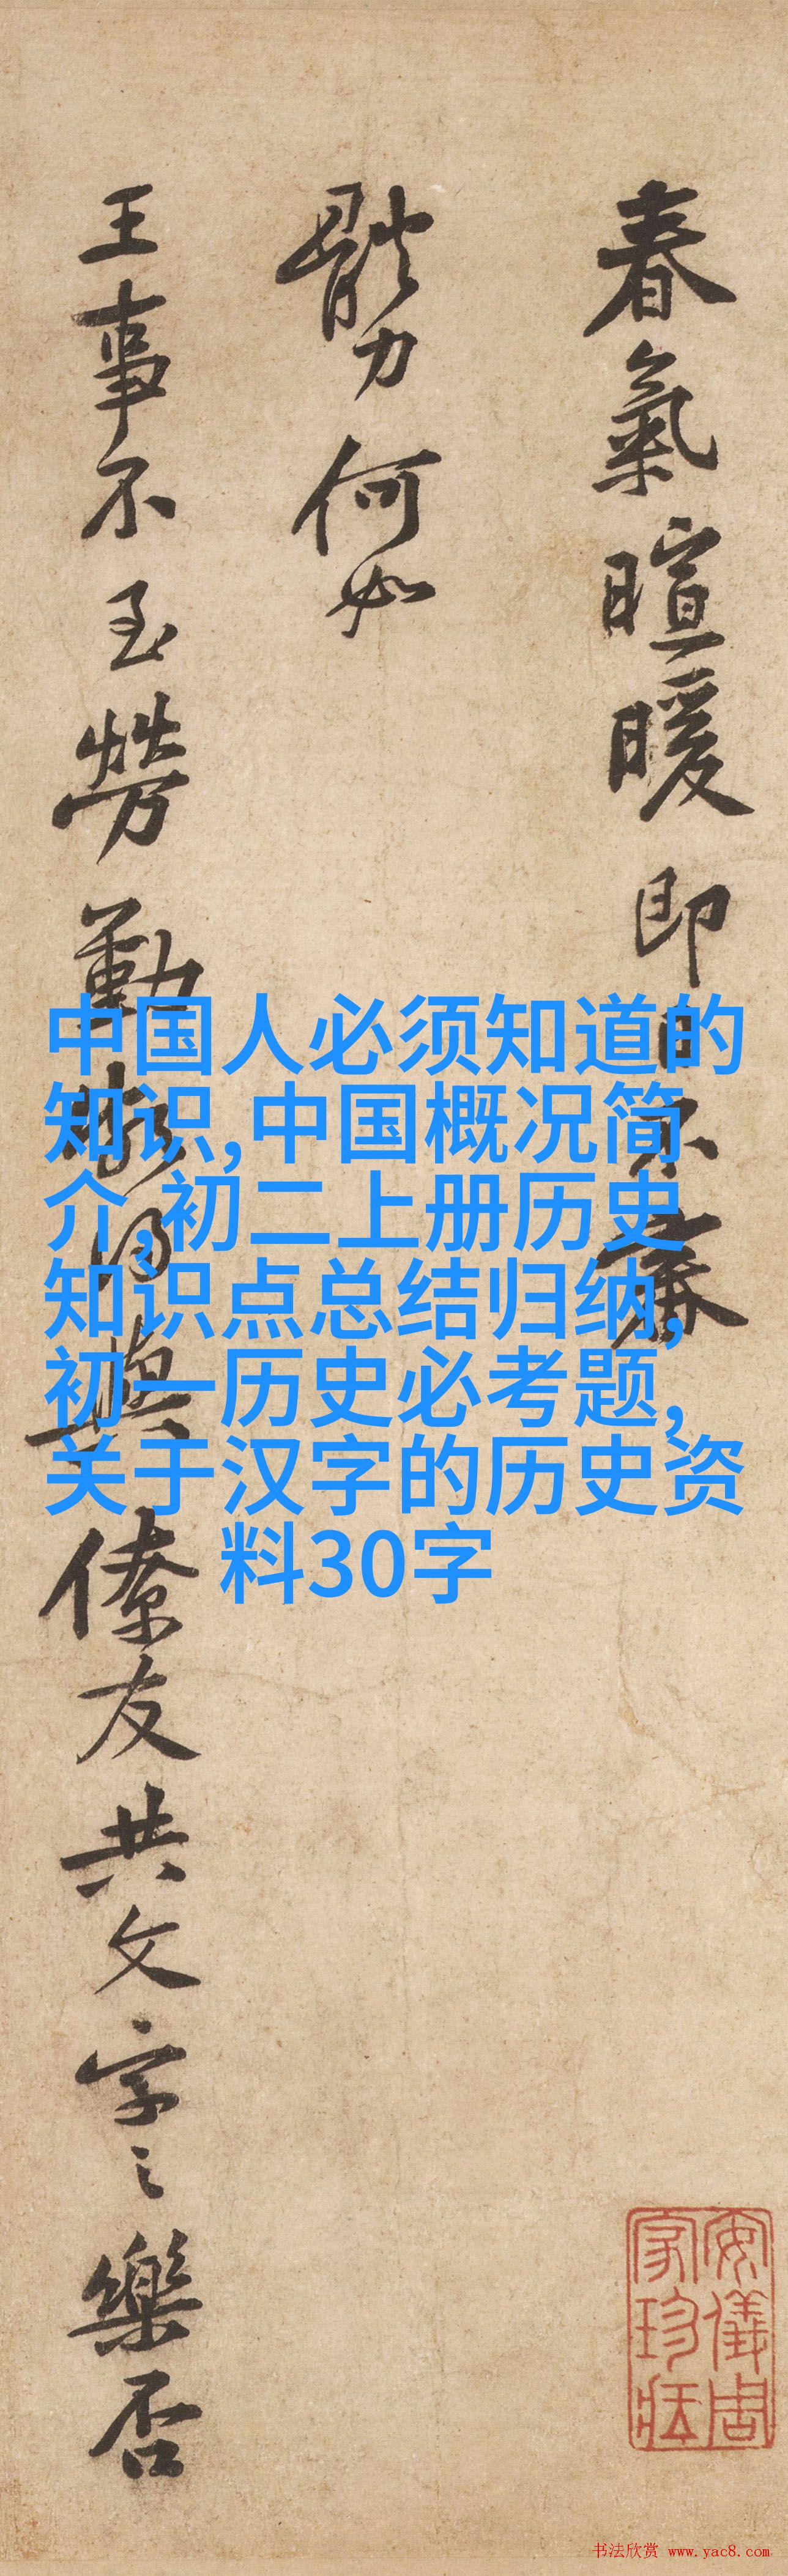 春氣暄暖即日不審
體力何如
王事不至勞勤
與僚友共文字之樂否
中国人必须知道的
知识,中国概况简
介,初二上册历史
知识点总结归纳,
初一历史必考题,
关于汉字的历史资
料30字
安儀周
家珍藏
书法欣赏 www.yac8.com